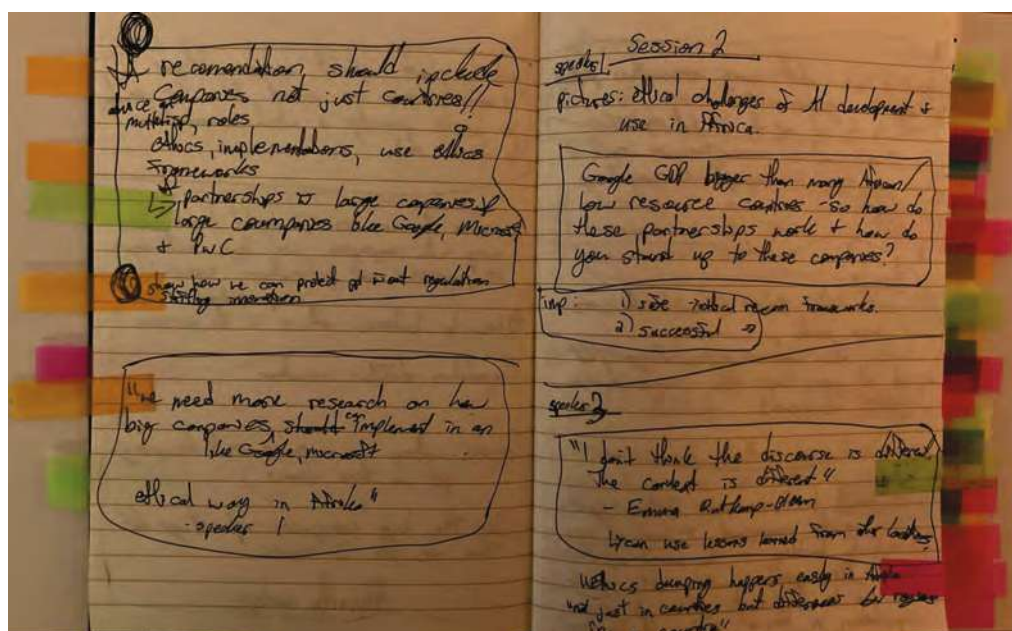 recomendation, should include
companies not just countries!!
roles
ethics, implementations, use ethics
frameworks
partnerships w large companies
large coumpanies like Google, Microsoft
+ PwC
show how we can protect regulation
innovation
"we need more research on how
big companies, should can implement in an
like Google, microsoft
ethical way in Africa"
- speaker 1
Session 2
speaker 1
pictures: ethical challenges of AI development +
use in Africa.
Google GDP bigger than many African/
low resource countries - so how do
these partnerships work + how do
you stand up to these companies?
imp: 1)
2) successful →
speaker
"I don't think the discourse is different
The context is different"
- Emma
can use lessons learned from other
Ethics dumping happens easily in Africa
"not just in countries but